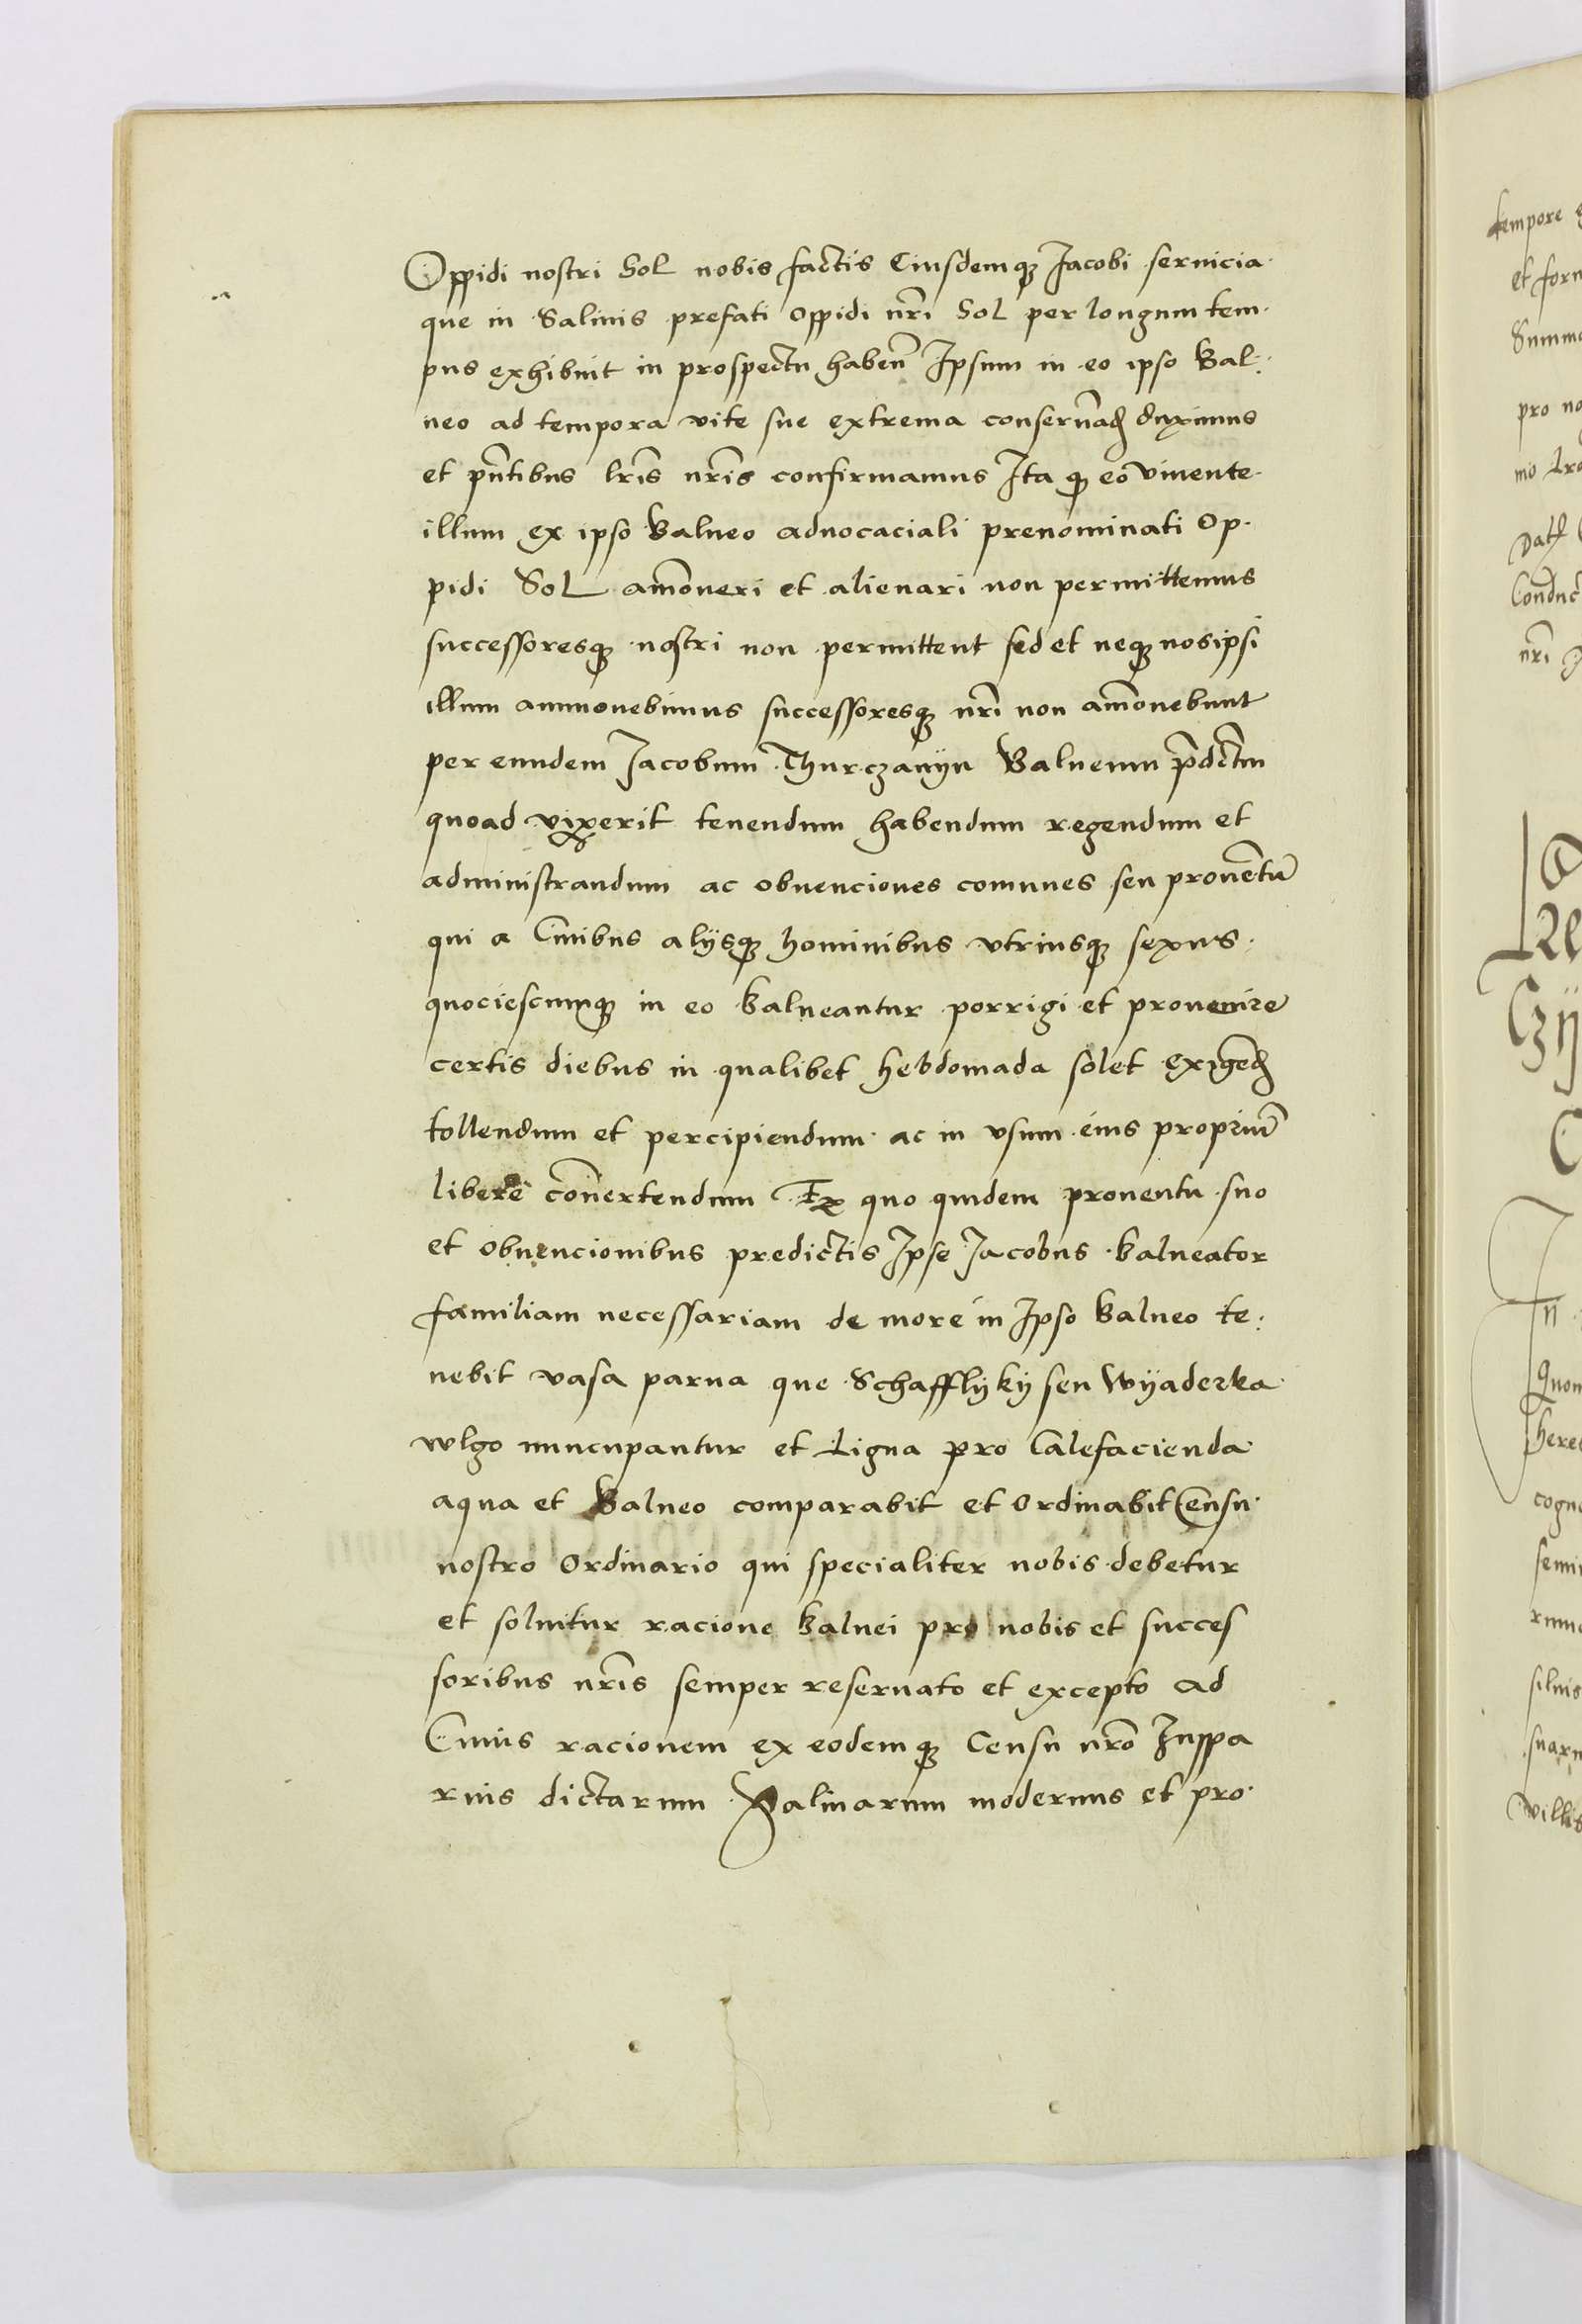 Oppidi nostri Sol nobis factis Eiusdemqꝫ Jacobi seruicia
que in Salinis prefati Oppidi nr̃i Sol per longum tem-
pus exhibuit in prospectu habeñ Ipsum in eo ipso Bal:
neo ad tempora vite sue extrema conseruãd duximus
et pñtibus lr̃is nr̃is confirmamus Ita qꝫ eo viuente
illum ex ipso Balneo aduocaciali prenominati Op-
pidi Sol am̃oueri et alienari non permittemus
successoresqꝫ nostri non permittent sed et neqꝫ nosipsi
illum ammouebimus successoresqꝫ nr̃i non am̃ouebunt
per eundem Jacobum Thurczanÿn Balneum p̃dctm
quoad vixerit tenendum habendum regendum et
administrandum ac obuenciones comunes seu prouentũ
qui a Ciuibus alÿsqꝫ hominibus vtriusqꝫ sexus
quociescumqꝫ in eo balneantur porrigi et prouenire
certis diebus in qualibet hebdomada solet exigend̃
tollendum et percipiendum ac in vsum eius propriũ
libere conũertendum Ex quo quidem prouentu suo
et obuencionibus predictis Ipse Jacobus balneator
familiam necessariam de more in Ipso balneo te:
nebit vasa parua que Schafflÿkÿ seu Wÿaderka
wlgo nuncupantur et Ligna pro Calefacienda
aqua et Balneo comparabit et Ordinabit Censu
nostro Ordinario qui specialiter nobis debetur
et soluitur racione balnei pro nobis et succes
soribus nr̃is semper reseruato et excepto Ad
Cuius racionem ex eodemqꝫ Censu nr̃o Zuppa
rius dictarum Salinarum modernus et pro
tempore
et
pro
mo
nr̃i
Czÿ